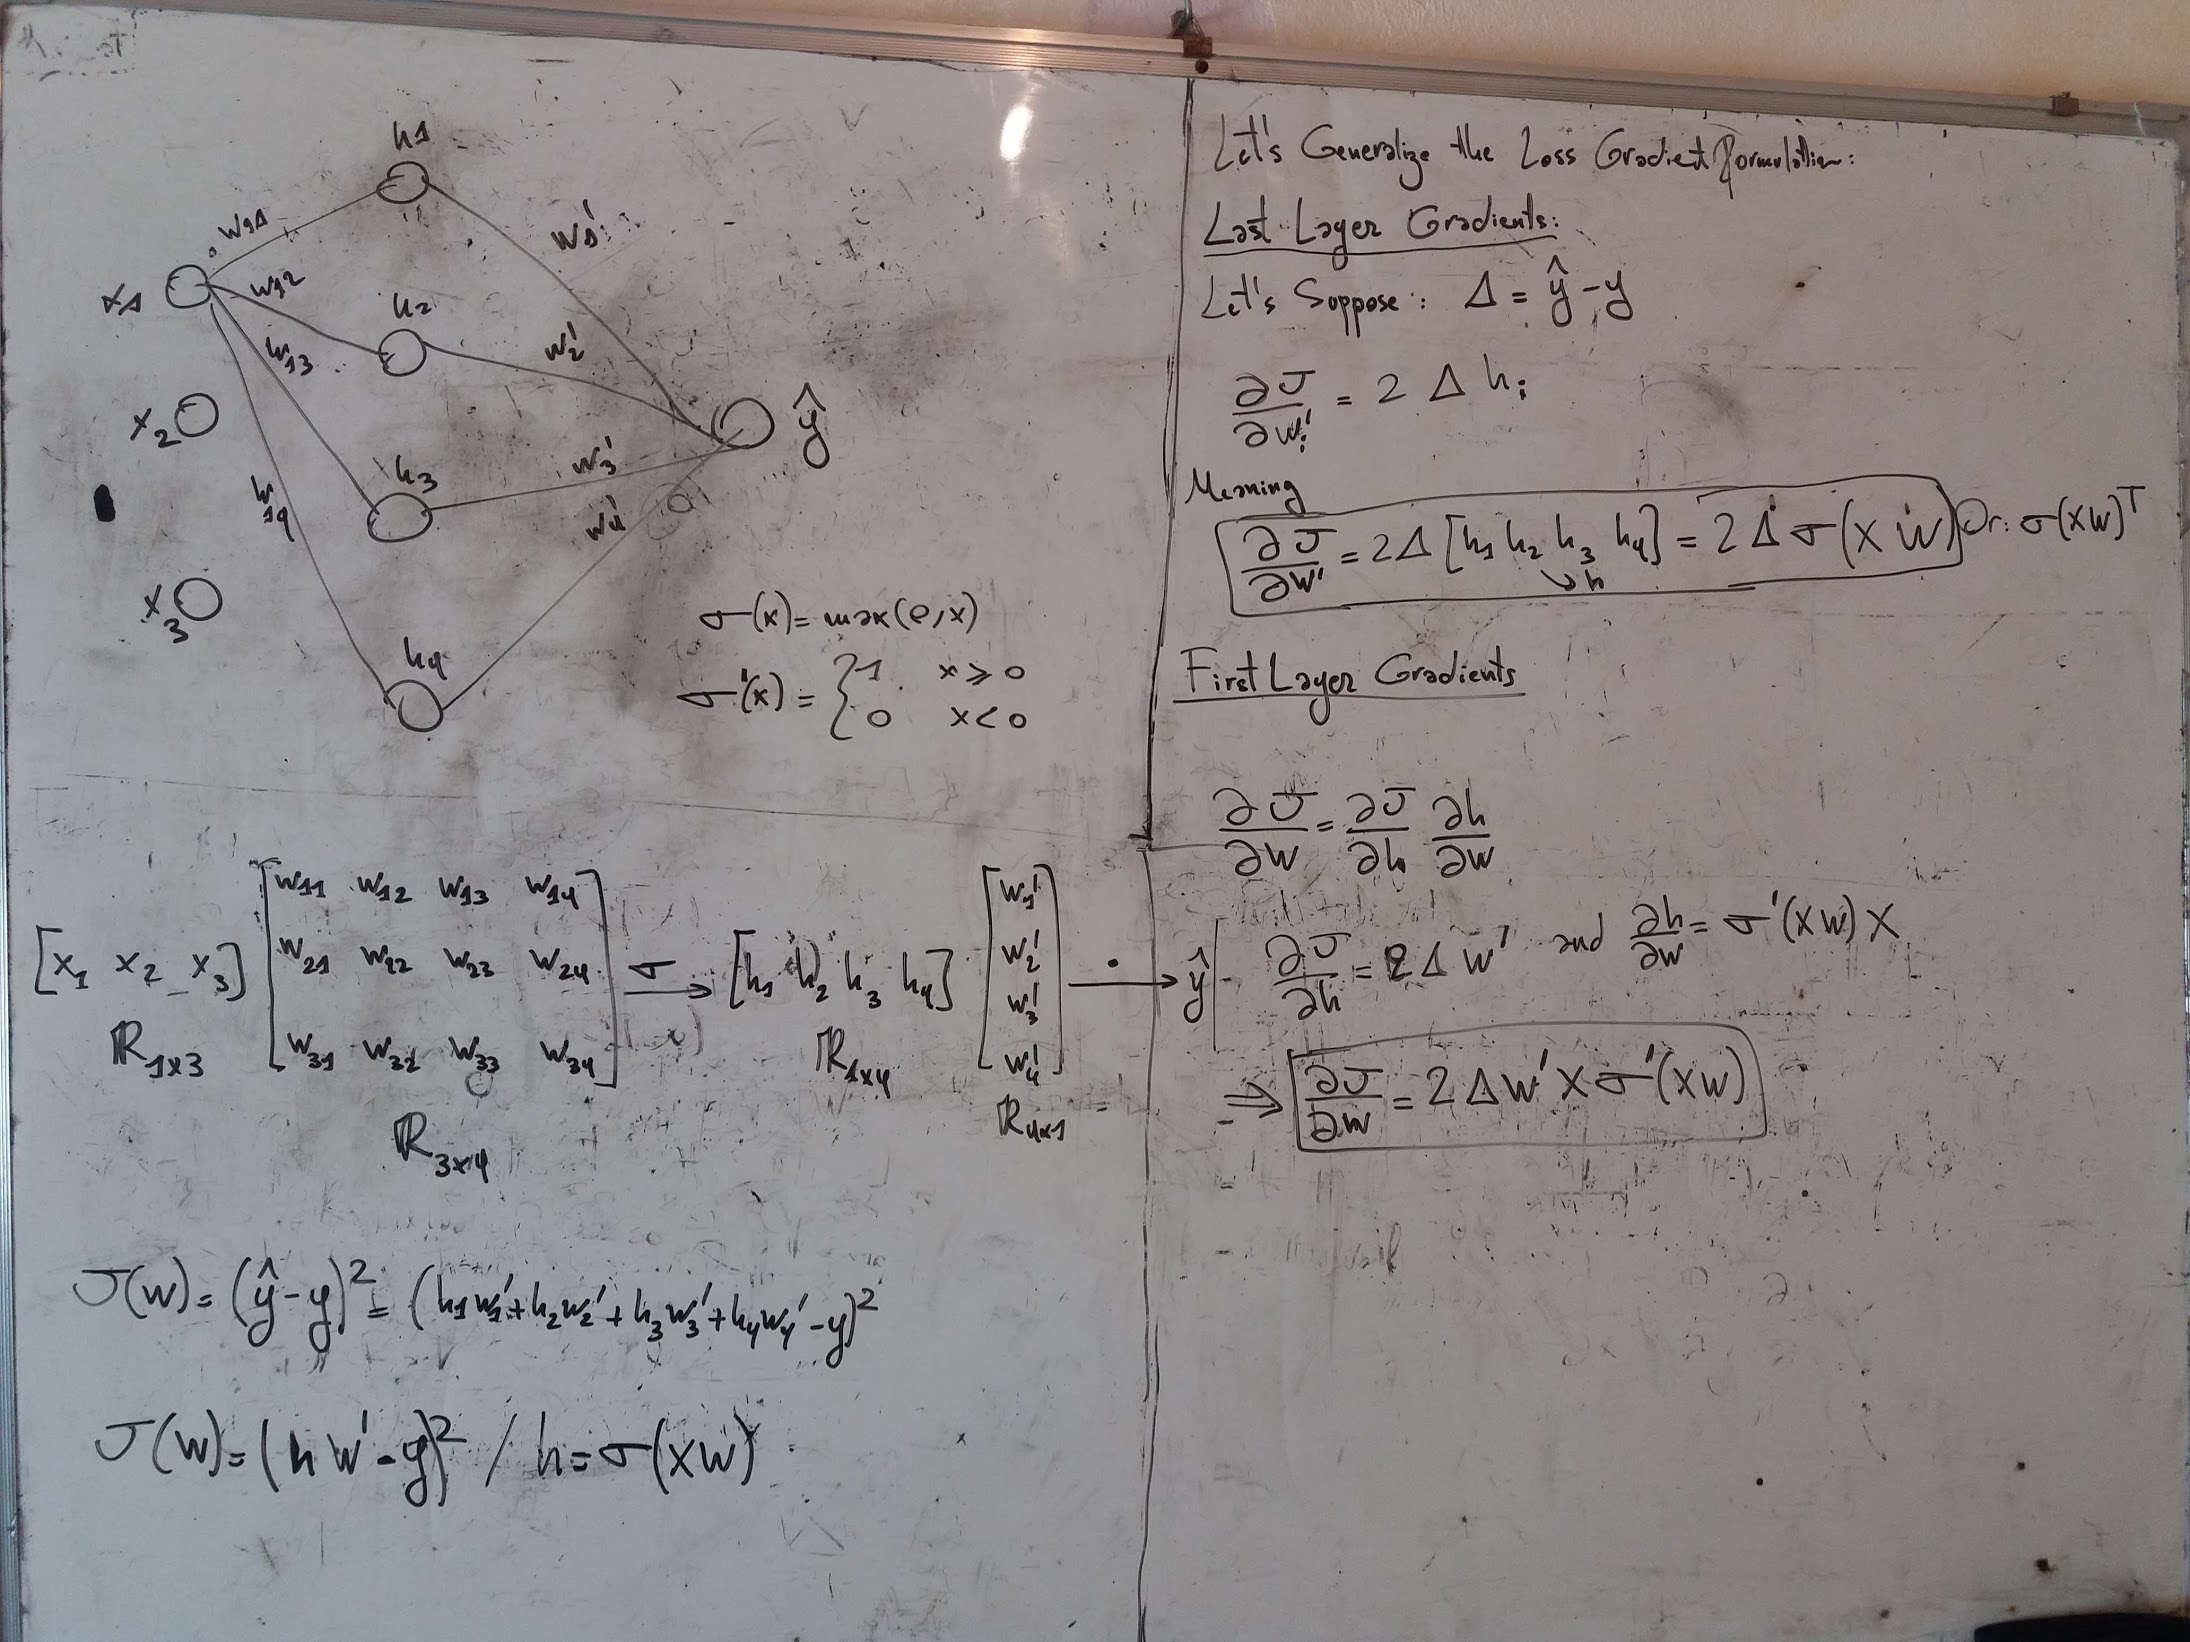 h1
w11
w1'
x1
w12
h2
w13
w2'
x2
ŷ
h3
w3'
w14
w4'
x3
h4
σ(x) = max(0, x)
σ'(x) = { 1 x ≥ 0
0 x < 0
[x1 x2 x3] [w11 w12 w13 w14
w21 w22 w23 w24
w31 w32 w33 w34] σ→ [h1 h2 h3 h4] [w1'
w2'
w3'
w4'] ·→ ŷ
ℝ1x3
ℝ3x4
ℝ1x4
ℝ4x1
J(w) = (ŷ-y)² = (h1w1' + h2w2' + h3w3' + h4w4' - y)²
J(w) = (h w' - y)² / h = σ(xw)
Let's Generalize the Loss Gradient Formulation:
Last Layer Gradients:
Let's Suppose: Δ = ŷ - y
∂J/∂wi' = 2 Δ hi
Meaning
∂J/∂w' = 2Δ [h1 h2 h3 h4] = 2Δ σ(x w) Or: σ(xw)ᵀ
↘h
First Layer Gradients
∂J/∂w = ∂J/∂h ∂h/∂w
∂J/∂h = 2Δ w' and ∂h/∂w = σ'(xw) x
⇒ ∂J/∂w = 2Δw' x σ'(xw)